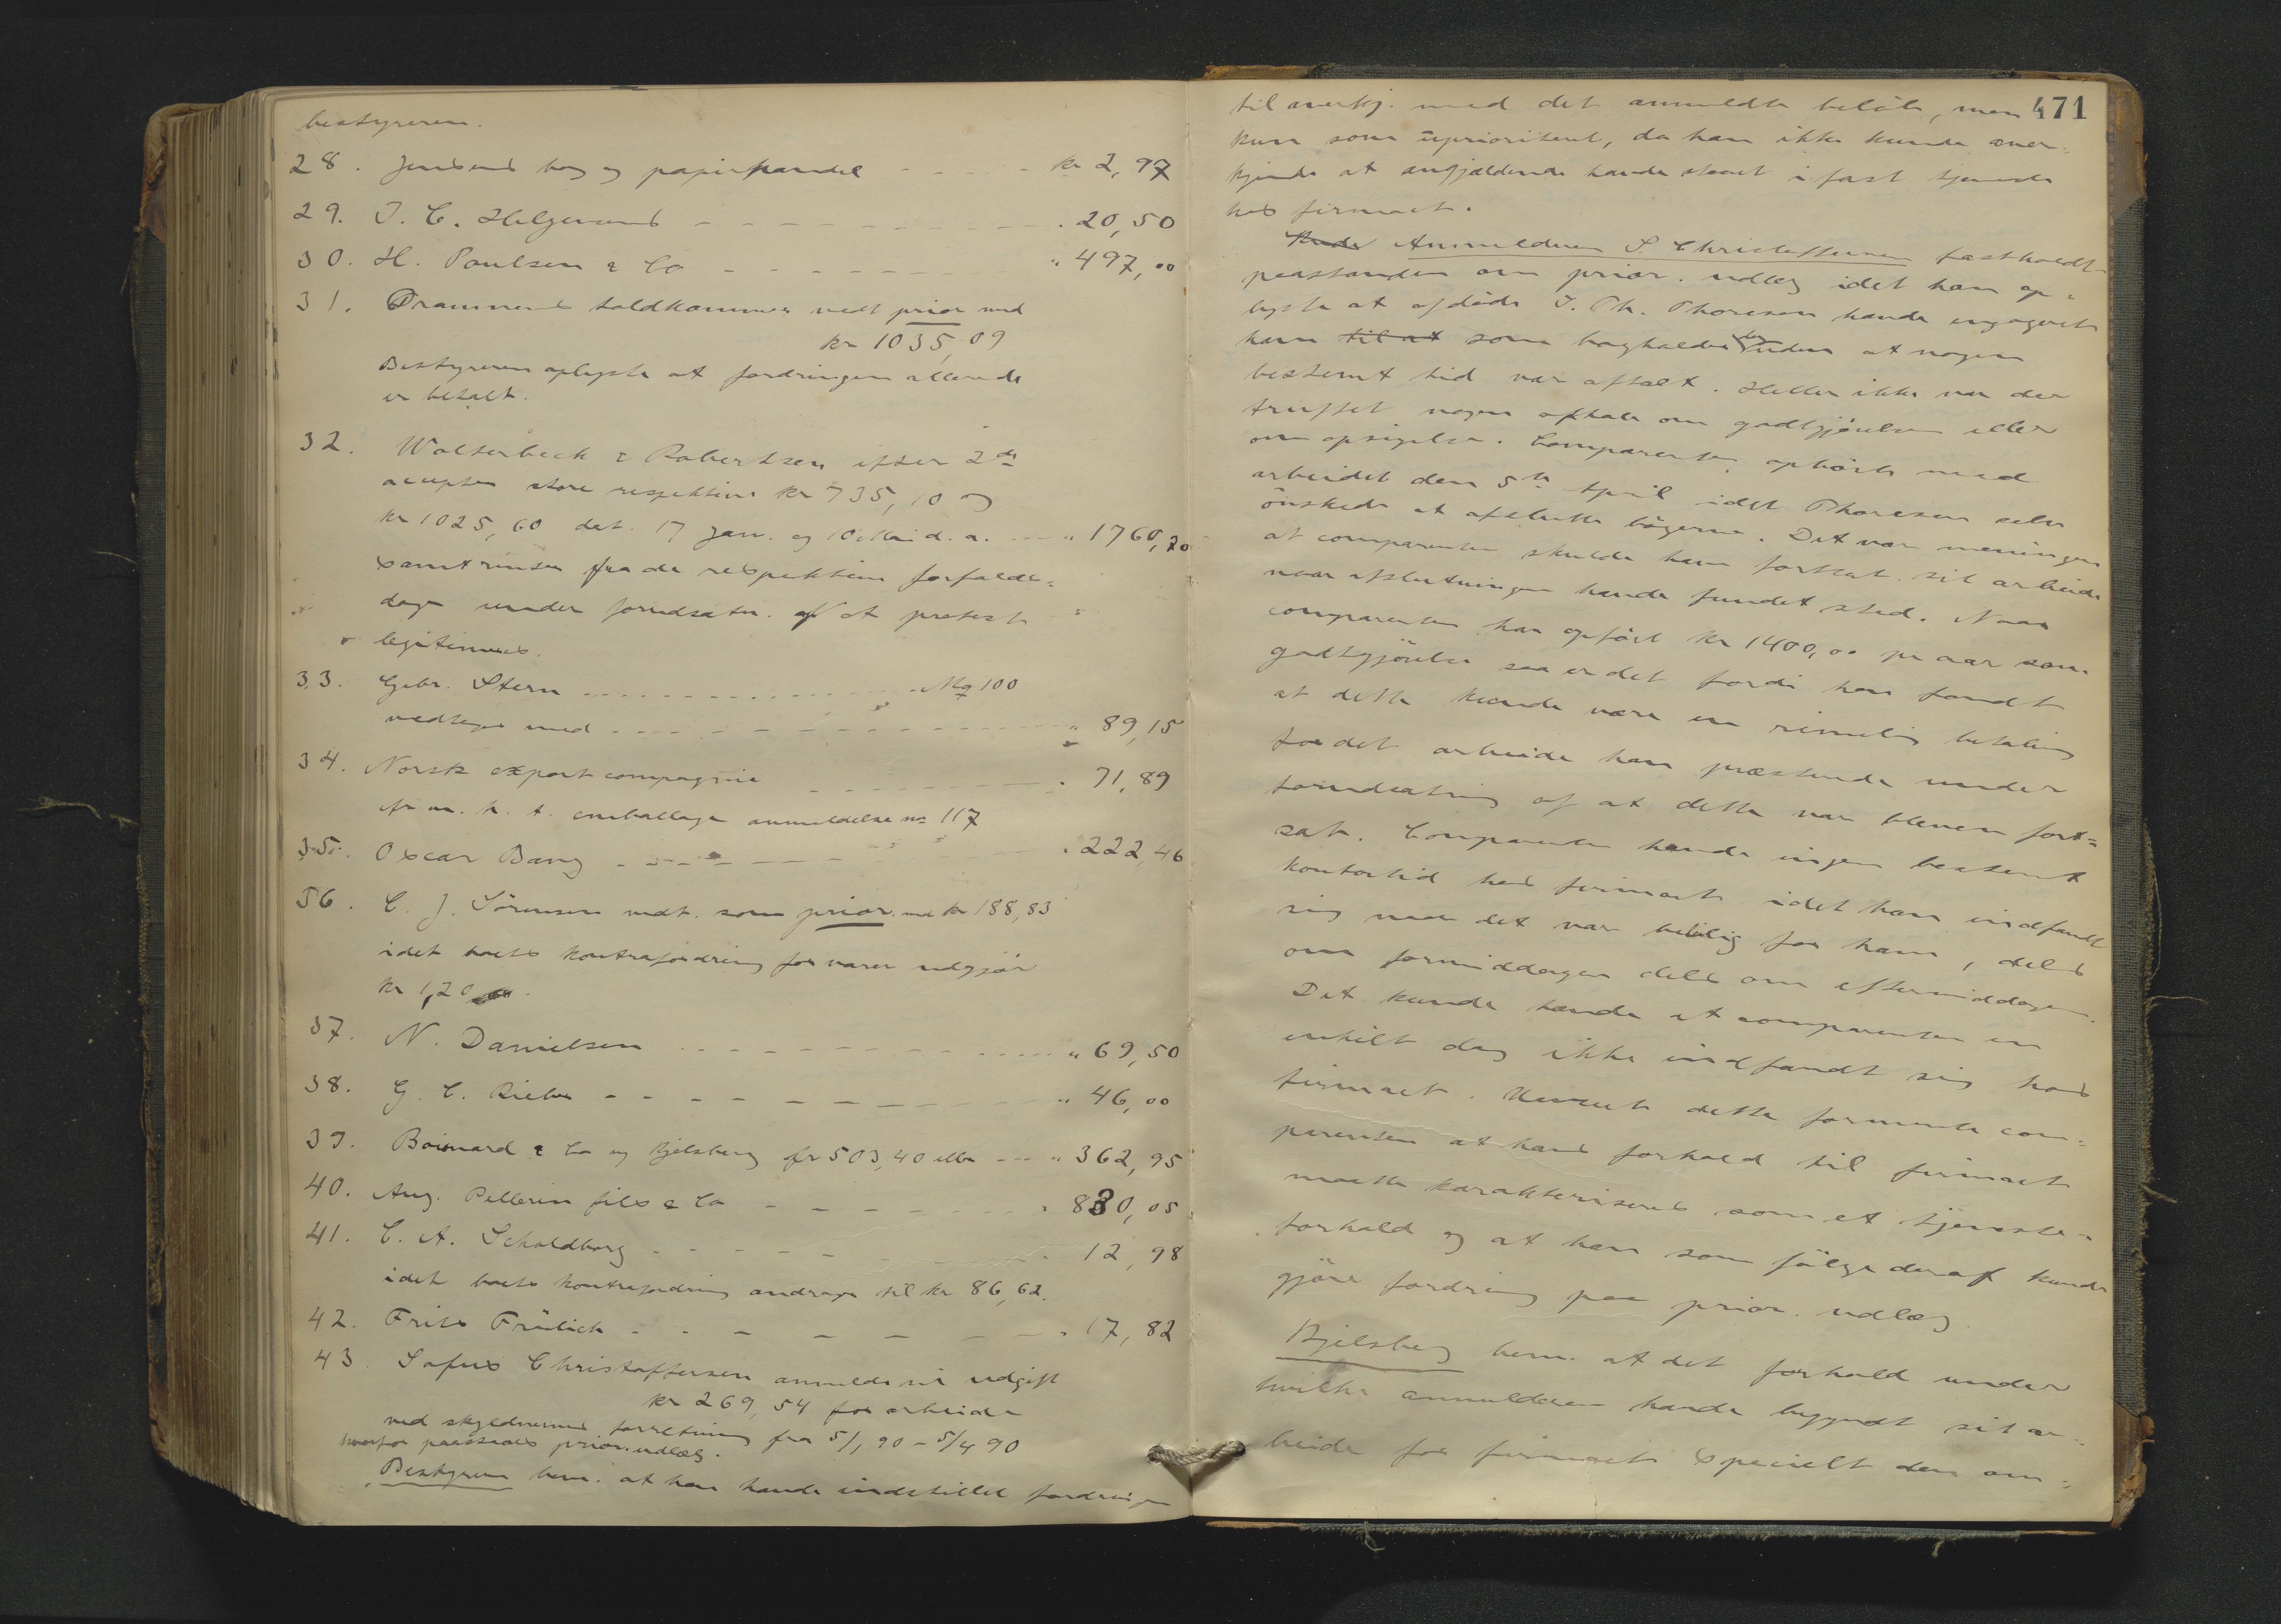 bestyreren.
28. Jensens bog og papirhandel - - - - kr 2,97
29. J. C. Helgesend - - - - . 20,50
30. H. Poulsen & Co - - - - " 497,00
31. Drammens toldkammer vedt prior med
kr 1035,09
Bestyreren oplyste at fordringen allerede
er betalt.
32. Wolterbeck & Robertsen efter 2de
accepter store respektive kr 735,10 og
kr 1025,60 dat. 17 Jan. og Mai d. a. - - " 1760,70
samt renter fra de respektive forfalds-
dage under forudsætn. af at protest
legitimeres.
33. Gebr. Stern - - - - Mg 100
vedtages med - - - - " 89,15
34. Norsk export compagnie - - - - . 71,89
m. h. t. emballage anmeldelse no 117
35. Oscar Bang - - - - . 222,46
36. C. J. Sörensen vedt. som prior. med kr 188,83
idet boets kontrafordring for varer udgjör
kr 1,20
37. N. Danielsen - - - - " 69,50
38. G. C. Rieber - - - - " 46,00
39. Boinard & Co og Kjelsberg fr 503,40 eller - - " 362,95
40. Aug. Pellerin fils & Co - - - - . 830,05
41. C. A. Scholdborg - - - - . 12,98
idet boets kontrafordring andrager til kr 86,62.
42. Frits Frölich - - - - . 17,82
43. Sofus Christoffersen anmeldt sin udgift
kr 269,54 for arbeide
ved skyldnernes forretning fra 5/1 90 - 5/4 90
hvorfor paastaaes prior. udlæg.
Bestyreren bem. at han havde indstillet fordringen
471
til anerkj. med det anmeldte belöb, men
kun som uprioriteret, da han ikke kunde aner-
kjende at angjældende havde staaet i fast tjeneste
hos firmaet.
Anmelderen S. Christoffersen fastholdt
paastanden om prior. udlæg idet han op-
lyste at afdöde J. Th. Thoresen havde engageret
ham til at som bogholder uden at nogen
bestemt tid var aftalt. Heller ikke var der
truffet nogen aftale om godtgjörelsen eller
om opsigelse. Comparenten ophörte med
arbeidet den 5te April idet Thoresen selv
önskede at afslutte bögerne. Det var meningen
at comparenten skulde have fortsat sit arbeide
naar afslutningen havde fundet sted. Naar
comparenten har opfört kr 1400,00 pr aar som
godtgjörelse saa er det fordi han fandt
at dette kunde være en rimelig betaling
for det arbeide han præsterede under
forudsætning af at dette var bleven fort-
sat. Comparenten havde ingen bestemt
kontortid hos firmaet idet han indfandt
sig naar det var beleilig for ham, dels
om formiddagen dels om eftermiddagen.
Det kunde hænde at comparenten en
enkelt dag ikke indfandt sig hos
firmaet. Uanseet dette formente com-
parenten at hans forhold til firmaet
maatte karakteriseres som et tjeneste-
forhold og at han som fölge deraf kunde
gjöre fordring paa prior. udlæg.
Kjelsberg bem. at det forhold under
hvilke anmelderen havde begyndt sit ar-
beide for firmaet specielt den om-